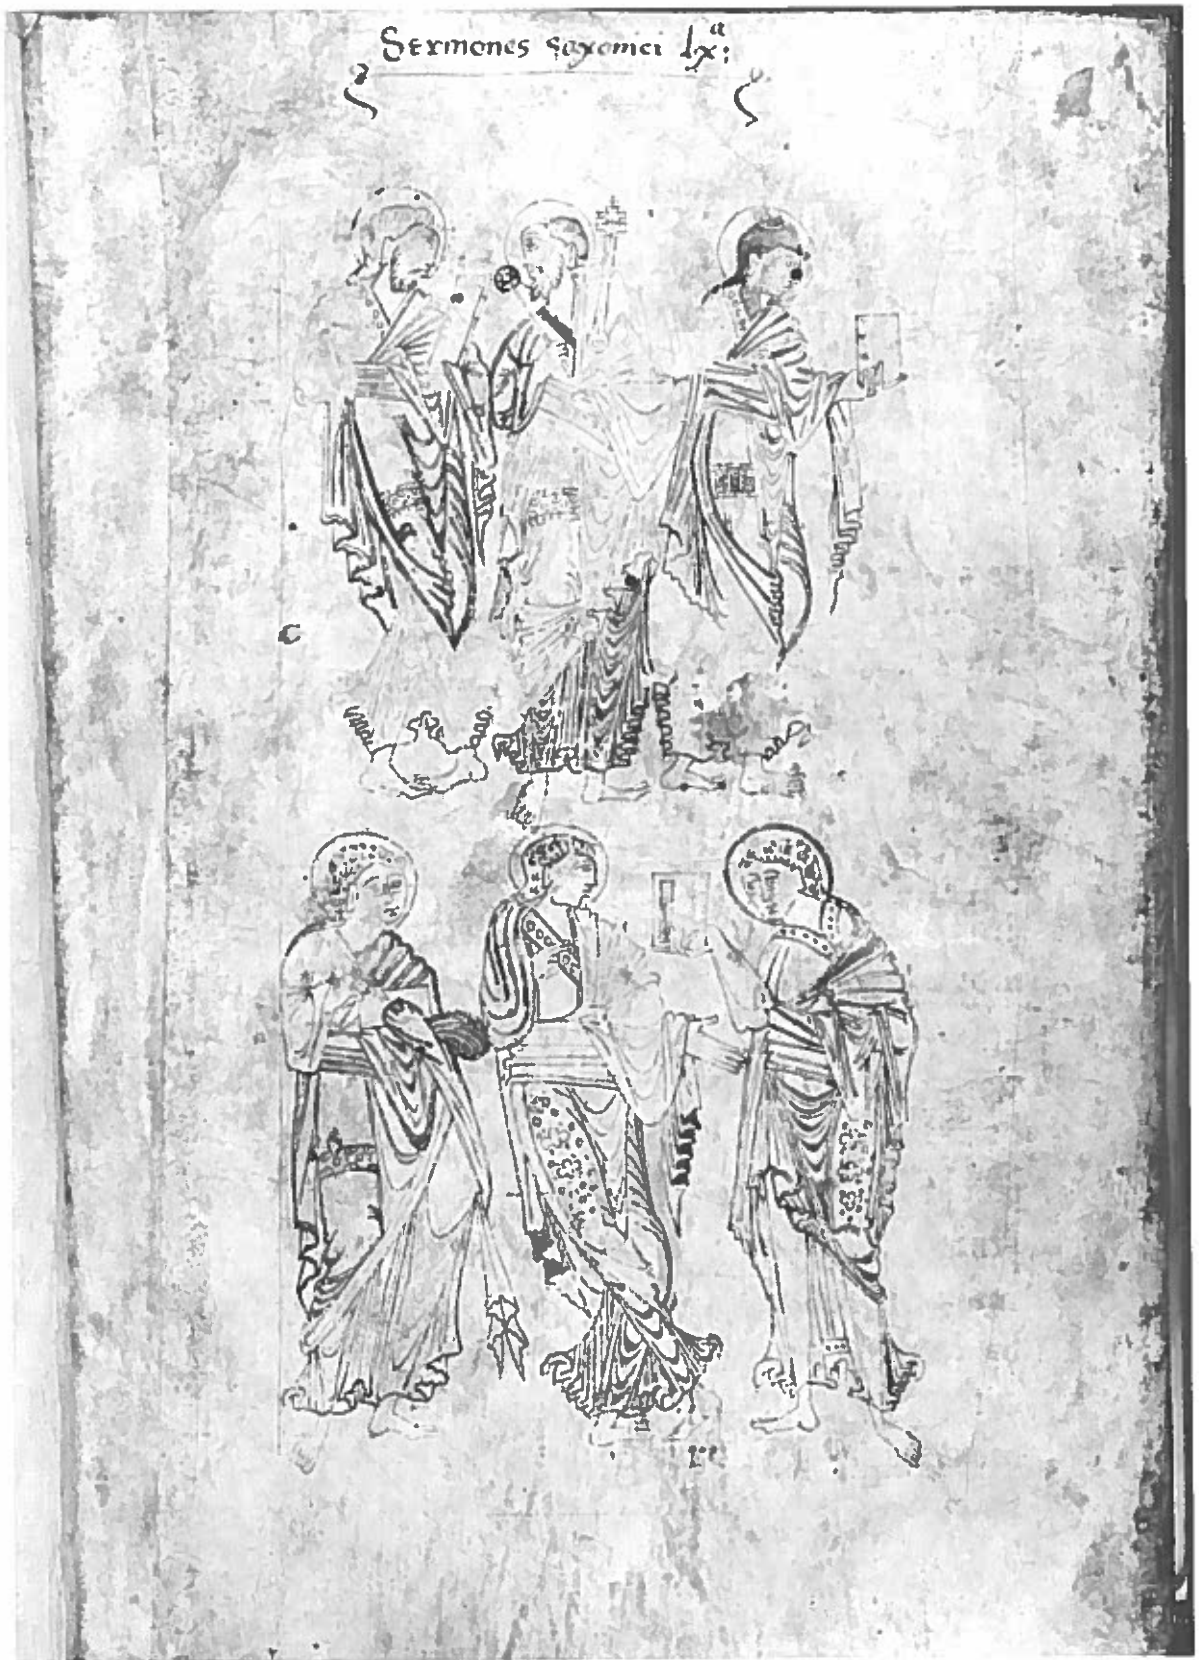 Sermones saxonici lxª:
c